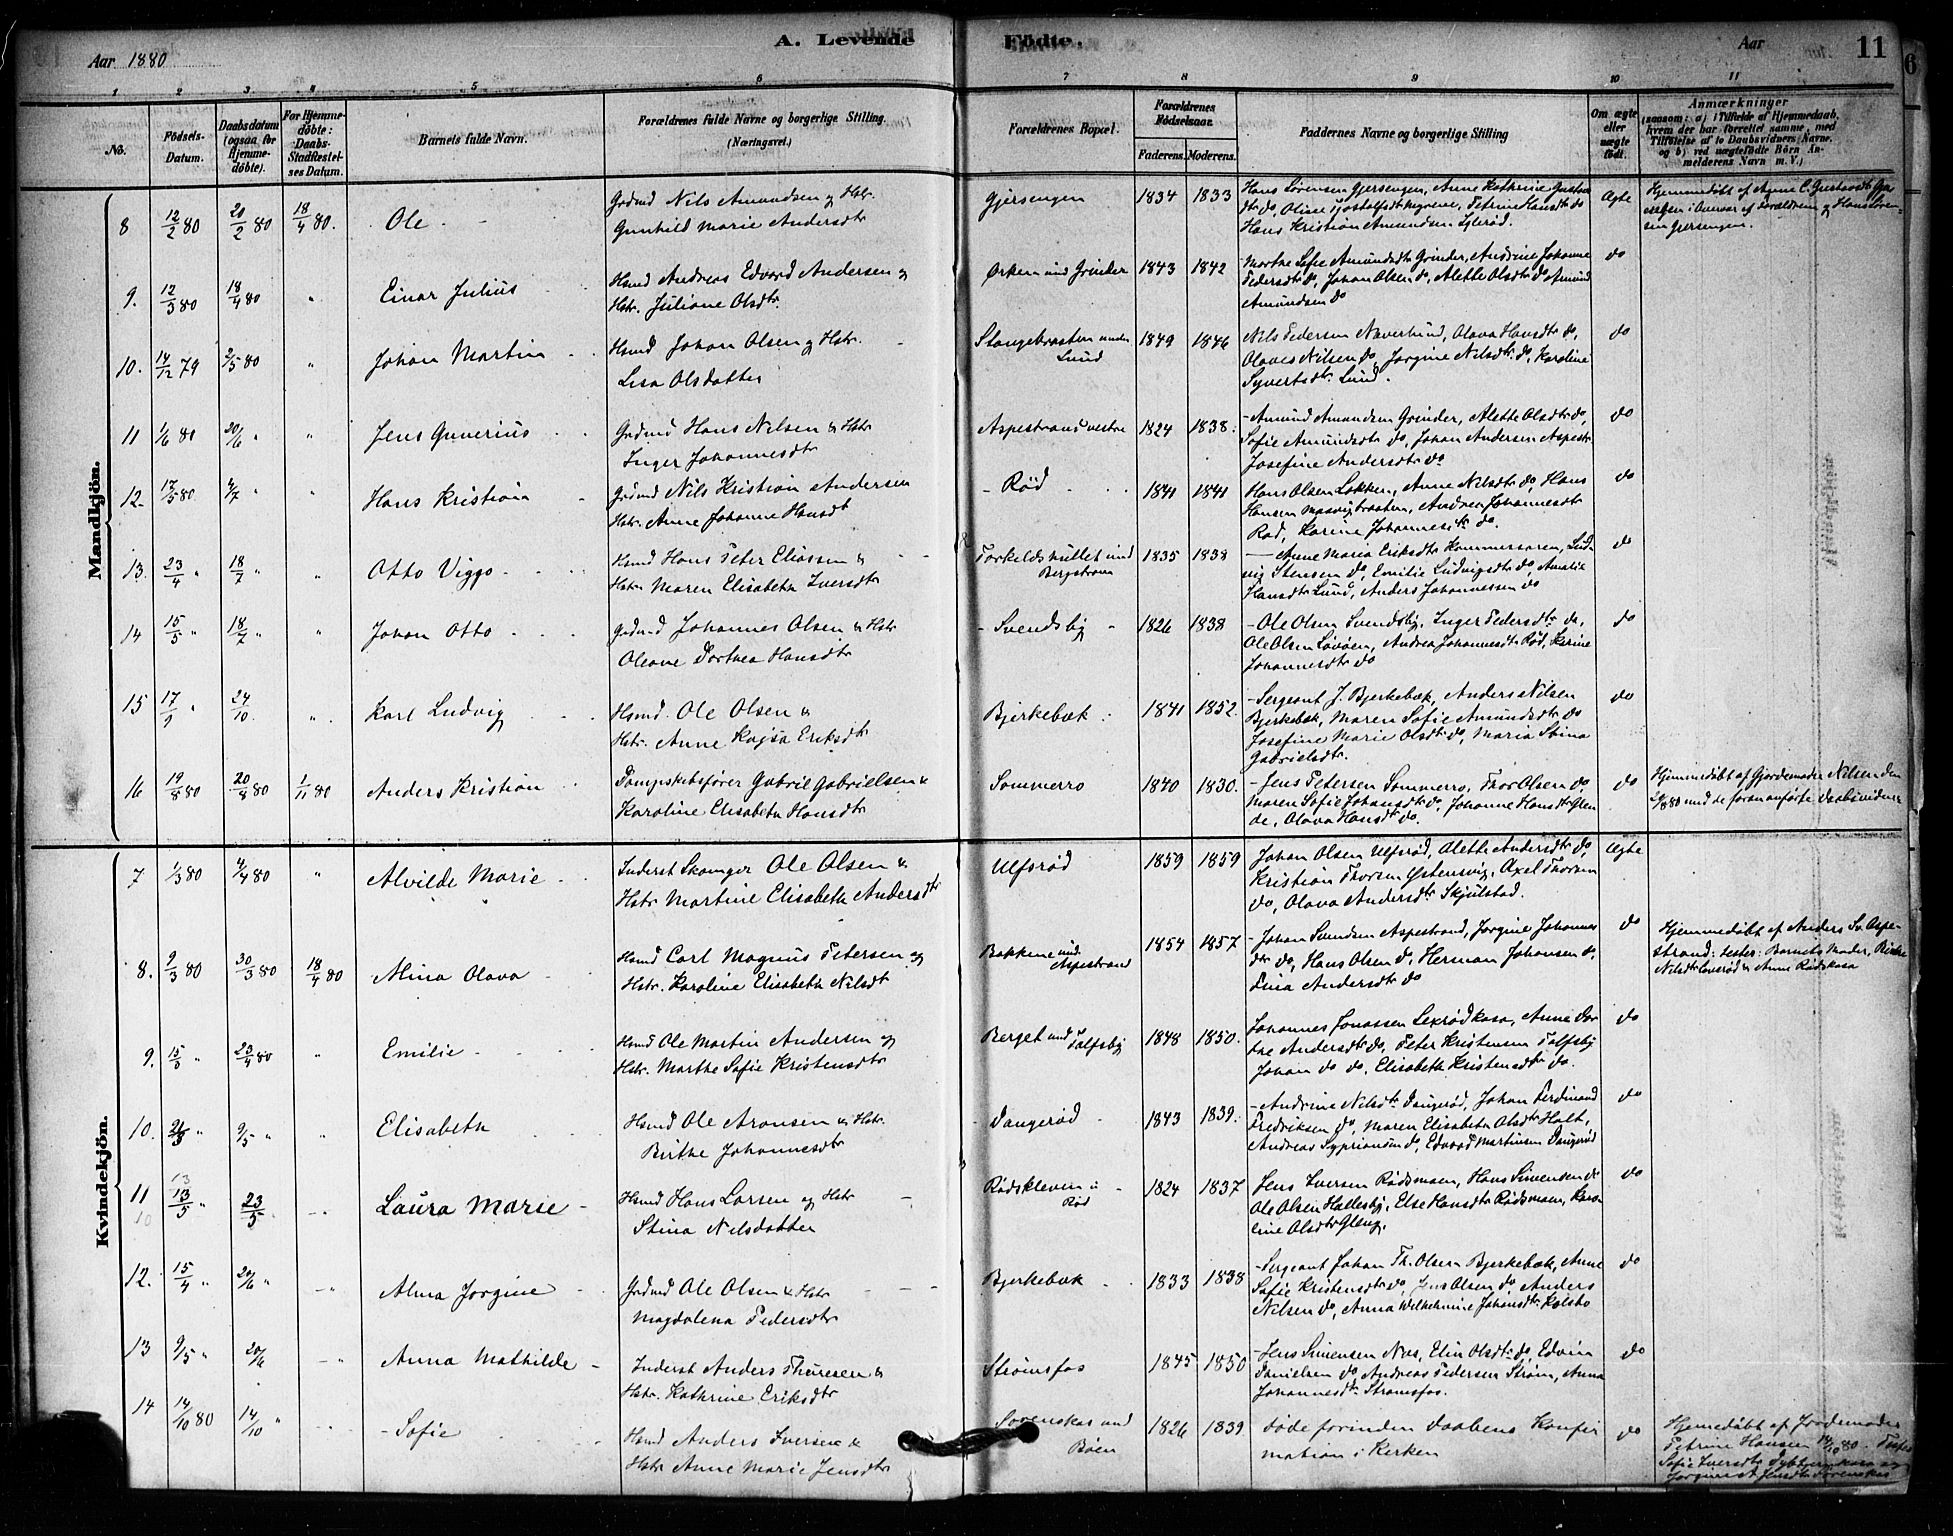 Aar 1880
A. Levende
Fødte.
Aar
11
1 2 3 4 5 6 7 8 9 10 11
No.
Fødsels-Datum.
Daabsdatum (ogsaa for Hjemme-døbte).
For Hjemme-døbte: Daabs-Stadfæstel-ses Datum.
Barnets fulde Navn.
Forældrenes fulde Navne og borgerlige Stilling. (Næringsvei.)
Forældrenes Bopæl.
Forældrenes Fødselsaar.
Faderens. Moderens.
Faddernes Navne og borgerlige Stilling
Om ægte eller uægte født.
Anmærkninger
(saasom: a) i Tilfælde af Hjemmedaab, hvem der har forrettet samme, med Tilføielse af to Daabsvidners Navne, og b) ved uægtefødte Børn An-melderens Navn m. V.)
Mandkjøn.
8 12/2 80 20/2 80 18/4 80. Ole
Grdmd Nils Amundsen og Hstr.
Gunhild Marie Andersdtr
Gjersengen 1834 1833
Hans Sørensen Gjersengen, Anne Kathrine Gustav
dtr do, Petrine Hansdtr do
Hans Kristian Amundsen
Ægte
Hjemmedøbt af Anne C. Gustavsdtr Gjer
sengen i Overvær af Forældrene og Hans Søren-
sen Gjersengen.
9. 12/3 80 18/4 80 " Einar Julius
Hsmd Andreas Edvard Andersen og
Hstr. Juliane Olsdtr.
Ørken und Grinder 1843 1842
Marthe Sofie Amundsdtr Grinder, Andrine Johanne
Pedersdtr do, Johan Olsen do, Alette Olsdtr do Amund
Amundsen do
do
10. 14/12 79 2/5 80 " Johan Martin
Hsmd Johan Olsen og Hstr.
Lisa Olsdatter
Stangebraaten under
Lund
1849 1846
Nils Pedersen Naverlund, Olava Hansdtr do,
Olaves Nilsen do, Jørgine Nilsdtr do, Karoline
Syvertsdtr Lund.
do
11 1/6 80 20/6 " " Jens Gunerius
Grdmd Hans Nilsen & Hstr
Inger Johannesdtr
Aspestrand vestre 1824 1838
Amund Amundsen Grinder, Alette Olsdtr do,
Sofie Amundsdtr do, Johan Andersen Aspestr
Josefine Andersdtr do
do
12. 17/5 80 4/7 " " Hans Kristian
Grdmd Nils Kristian Andersen
Hstr. Anne Johanne Hansdt
Rød 1841 1841
Hans Olsen Løkken, Anne Nilsdtr do, Hans
Hansen Masvigbraaten, Andrea Johannesdtr
Rød, Karine Johannesdtr do.
do
13. 23/4 " 18/7 " " Otto Viggo
Hsmd Hans Peter Eliassen &
Hstr Maren Elisabeth Iversdtr
Torkeldshullet und
Bergstrøm
1835 1838
Anne Maria Eriksdtr Kammersaren, Lud-
vig Stensen do, Emilie Ludvigsdtr do, Amalie
Hansdtr Lund, Anders Johannessen do
do
14 15/5 " 18/7 " " Johan Otto
Grdmd Johannes Olsen & Hstr
Oleane Dorthea Hansdtr
Svendsby 1826 1838
Ole Olsen Svendsby, Inger Pedersdtr do,
Ole Olsen Løvøen, Andrea Johannesdtr Rød, Karine
Johannesdtr do
do
15 17/9 " 24/10. " Karl Ludvig
Hsmd. Ole Olsen &
Hstr. Anne Kajsa Eriksdtr
Bjerkebæk 1841 1852
Sergeant J. Bjerkebæk, Anders Nilsen
Bjerkebæk, Maren Sofie Amundsdtr do
Josefine Marie Olsdtr do, Maria Stina
Gabrielsdtr.
do
16 19/8 80 20/8 80 1/11 80 Anders Kristian
Dampskibsfører Gabriel Gabrielsen &
Karoline Elisabeth Hansdtr
Sommerro 1840 1830.
Jens Petersen Sommerro, Thor Olsen do
Maren Sofie Johansdtr do, Johanne Hansdtr Glen
de, Olava Hansdtr do.
do
Hjemmedøbt af Gjordemoder Nilsen den
20/8 80 med de foran anførte Daabsvidner
Kvindekjøn.
7 1/3 80 4/4 80 " Alvilde Marie
Inderst Skomager Ole Olsen &
Hstr Martine Elisabeth Andersdtr
Ulfsrød 1859 1859
Johan Olsen Ulfsrød, Alette Andersdtr do,
Kristian Thorsen Ystensvig, Axel Thorsen
do, Olava Andersdtr Skjulstad.
Ægte
8. 9/3 80 30/3 80 18/4 80 Mina Olava
Hsmd Carl Magnus Petersen og
Hstr. Karoline Elisabeth Nilsdt
Bakkene und
Aspestrand
1854 1857
Johan Svendsen Aspestrand, Jørgine Johannes
dtr do, Hans Olsen do, Herman Johansen do,
Lina Andersdtr do
do
Hjemmedøbt af Anders Sv. Aspe-
strand: Tester: Barnets Moder, Birthe
Nilsdtr & Anne Rødskasa
9. 15/3 " 23/4 80 " Emilie
Hsmd Ole Martin Andersen og
Hstr. Marthe Sofie Kristensdtr
Berget und Talfsby 1848 1850.
Johannes Jonassen Lexrødkasa, Anne Dor
the Andersdtr do, Peter Kristensen Talfsby
Johan do do, Elisabeth Kristensdtr do.
do
10. " 9/5 " " Elisabeth
Hsmd Ole Aronsen & Hstr.
Birthe Johannesdtr
Daugerød 1843 1839.
Andrine Nilsdtr Daugerød, Johan Ferdinand
Fredriksen do, Maren Elisabeth Olsdtr Holt,
Andreas Syprianson do, Edvard Martinsen Daugerød
do
11 13/5 " 23/5 Laura Marie
13
10
Hsmd Hans Larsen og Hstr
Stina Nilsdatter
Rødskleven u
Rød
1824 1837
Jens Iversen Rødsmoen, Hans Simensen do
Ole Olsen Hallesby, Else Hansdtr Rødsmoen, Karo-
line Olsdtr Gleng.
do
12. 15/4 " 20/6 " Alma Jørgine
Grdmd Ole Olsen & Hstr
Magdalena Pedersdtr
Bjerkebæk 1833 1838
Sergeant Johan Th. Olsen Bjerkebæk, Anne
Sofie Kristensdtr do, Jens Olsen do, Anders
Nilsen do, Anna Wilhelmine Johansdtr Kolsbo
do
13 9/5 " 20/6 Anna Mathilde
Inderst Anders Thuresen &
Hstr. Kathrine Eriksdtr
Strømsfos 1845 1850
Jens Simensen Næs, Elin Olsdtr do, Edvin
Danielsen do, Andreas Pedersen Strøm, Anna
Johannesdtr Strømsfos.
do
14 14/10 80 14/10 " Sofie
Hsmd Anders Iversen &
Hstr Anne Marie Jensdtr
Sørenskas und
Bøen
1826 1839
døde forinden Daabens Konfir
mation i Kirken
do
Hjemmedøbt af Jordemoder
Petrine Hansen 14/10 80.
Sofie Iversdtr
Jørgine A. Jensdtr Sørenskas